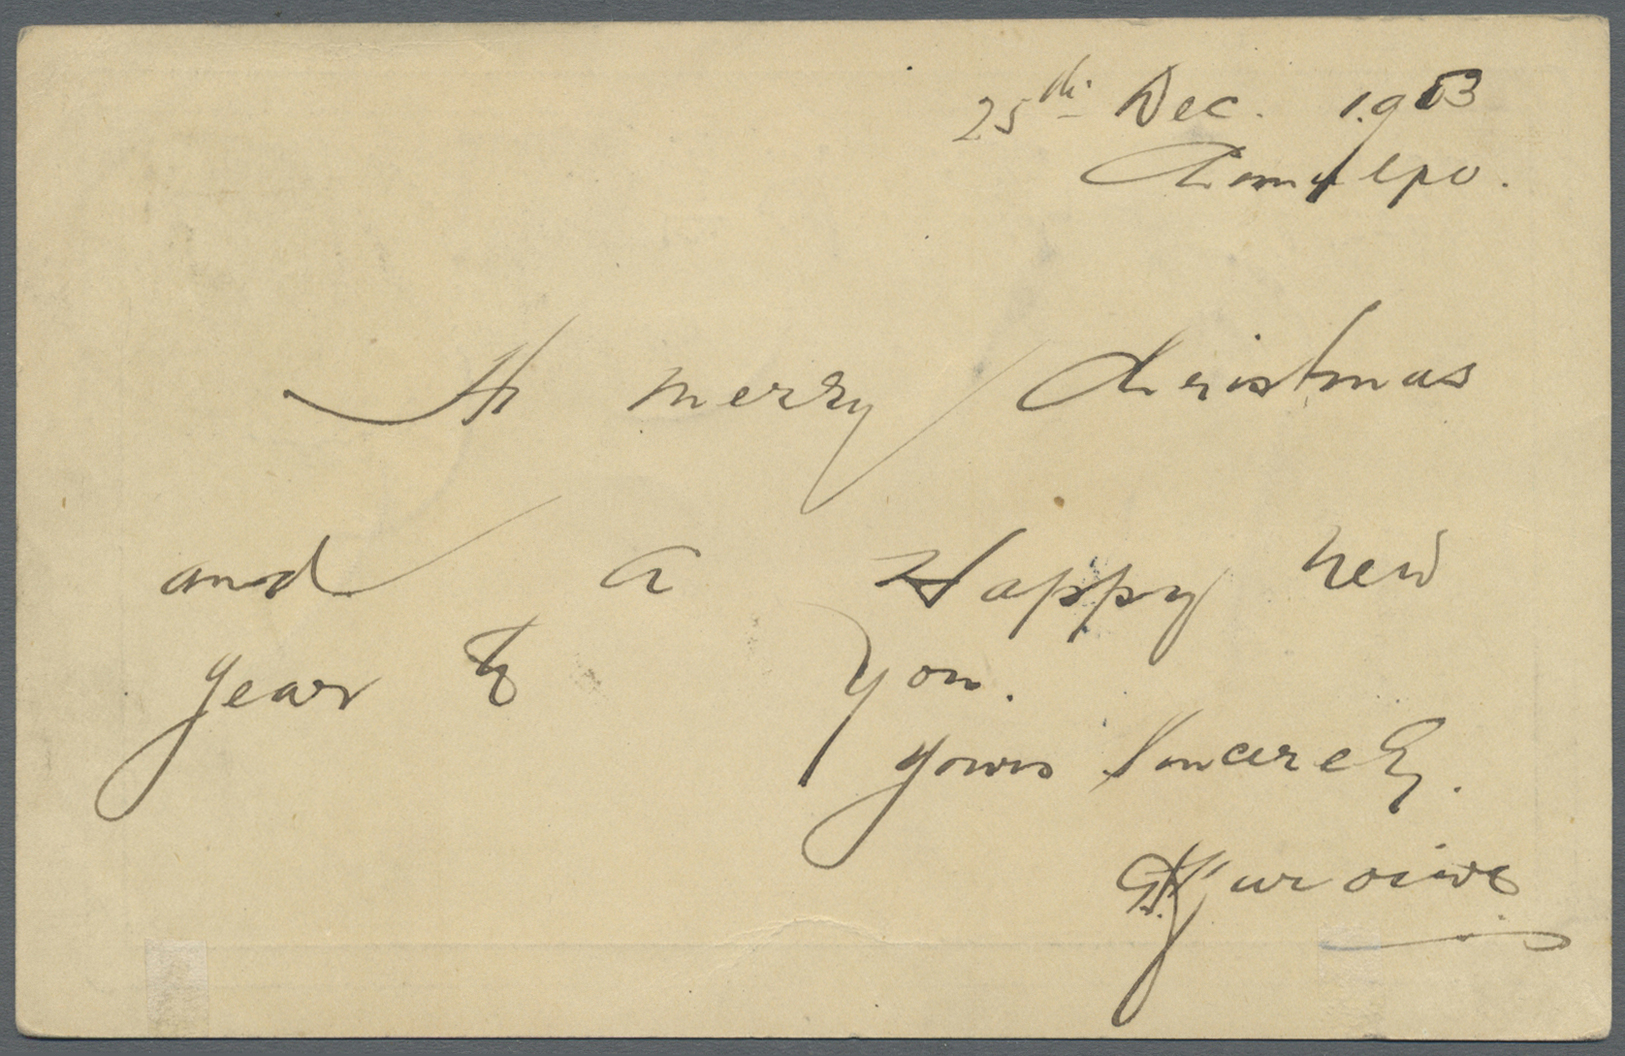 25th Dec. 1903
Chemulpo.
A merry Christmas
and a Happy new
year to you.
yours Sincerely.